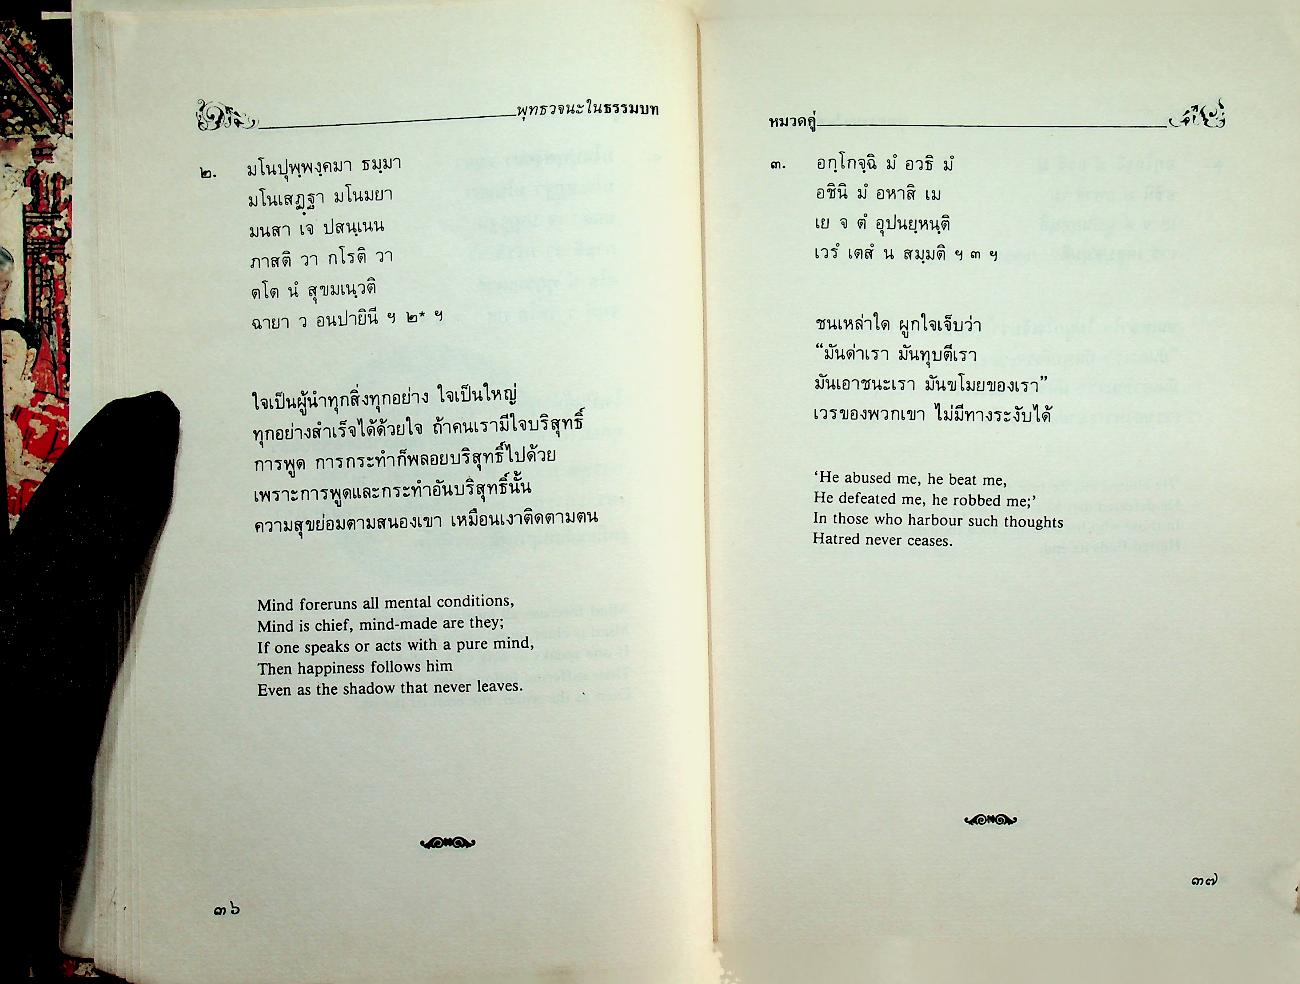 พุทธวจนะในธรรมบท
๒. มโนปุพฺพงฺคมา ธมฺมา
มโนเสฏฺฐา มโนมยา
มนสา เจ ปสนฺเนน
ภาสติ วา กโรติ วา
ตโต นํ สุขมเนฺวติ
ฉายา ว อนปายินี ฯ ๒* ฯ
ใจเป็นผู้นำทุกสิ่งทุกอย่าง ใจเป็นใหญ่
ทุกอย่างสำเร็จได้ด้วยใจ ถ้าคนเรามีใจบริสุทธิ์
การพูด การกระทำก็พลอยบริสุทธิ์ไปด้วย
เพราะการพูดและกระทำอันบริสุทธิ์นั้น
ความสุขย่อมตามสนองเขา เหมือนเงาติดตามตน
Mind foreruns all mental conditions,
Mind is chief, mind-made are they;
If one speaks or acts with a pure mind,
Then happiness follows him
Even as the shadow that never leaves.
๓๖
หมวดคู่
๓. อกฺโกจฺฉิ มํ อวธิ มํ
อชินิ มํ อหาสิ เม
เย จ ตํ อุปนยฺหนฺติ
เวรํ เตสํ น สมฺมติ ฯ ๓ ฯ
ชนเหล่าใด ผูกใจเจ็บว่า
“มันด่าเรา มันทุบตีเรา
มันเอาชนะเรา มันขโมยของเรา”
เวรของพวกเขา ไม่มีทางระงับได้
‘He abused me, he beat me,
He defeated me, he robbed me;’
In those who harbour such thoughts
Hatred never ceases.
๓๗